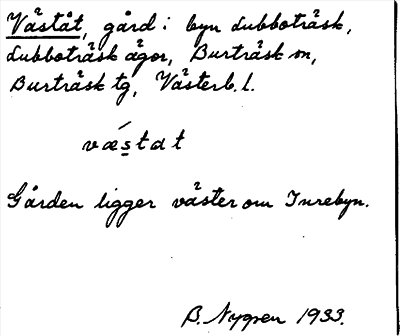 Väståt, gård i byn Lubboträsk,
Lubboträsk ägor, Burträsk sn,
Burträsk tg, Västerb. l.
vǽstat
Gården ligger väster om Inrebyn.
B. Nygren 1933.